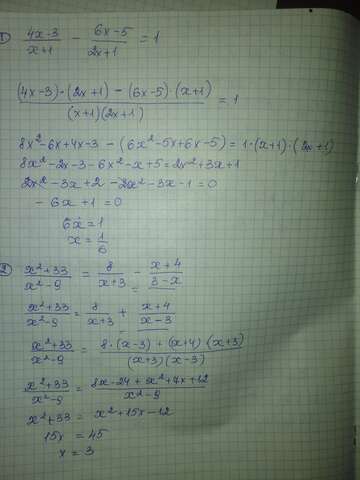 1) (4x-3)/(x+1) - (6x-5)/(2x+1) = 1
((4x-3)·(2x+1) - (6x-5)·(x+1))/((x+1)(2x+1)) = 1
8x²-6x+4x-3 - (6x²-5x+6x-5) = 1·(x+1)·(2x+1)
8x²-2x-3-6x²-x+5=2x²+3x+1
2x²-3x+2-2x²-3x-1=0
-6x+1=0
6x=1
x=1/6
2) (x²+33)/(x²-9) = 8/(x+3) - (x+4)/(3-x)
(x²+33)/(x²-9) = 8/(x+3) + (x+4)/(x-3)
(x²+33)/(x²-9) = (8·(x-3)+(x+4)·(x+3))/((x+3)(x-3))
(x²+33)/(x²-9) = (8x-24+x²+7x+12)/(x²-9)
x²+33 = x²+15x-12
15x = 45
x = 3